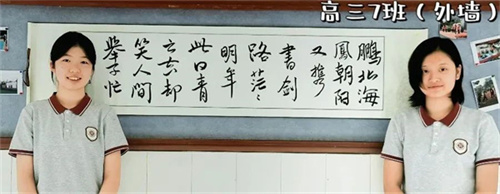 高三7班（外墙）
鵬北海
鳳朝阳
又携
書剑
路茫々
明年
此日青
云去却
笑人间
举子忙